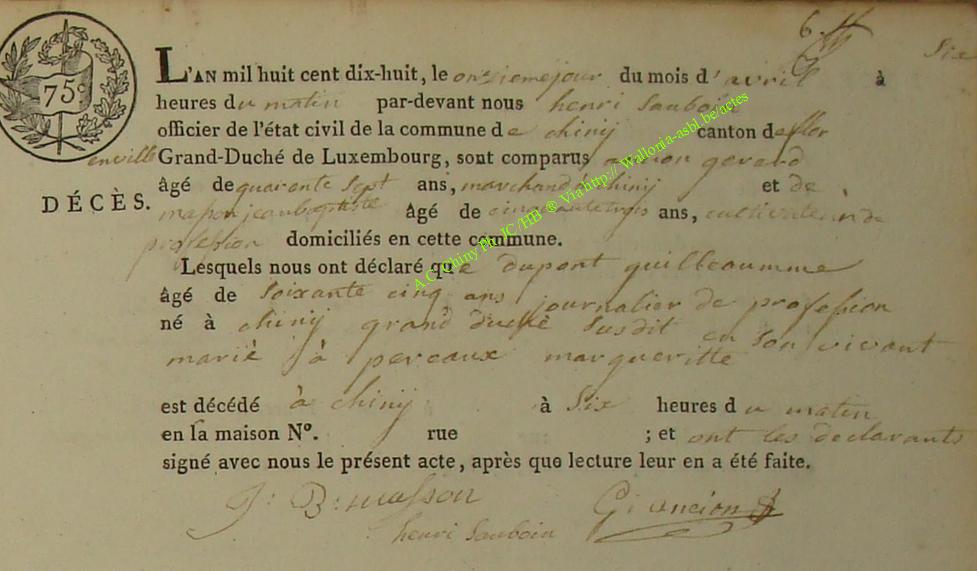 6.
75c
L'AN mil huit cent dix-huit, le onzieme jour du mois d'avril à Six
heures du matin par-devant nous henri Sauboin
officier de l'état civil de la commune de chinÿ canton de flor
enville Grand-Duché de Luxembourg, sont comparus ancion gerard
DÉCÈS.
âgé de quarante Sept ans, marchand à chinÿ et de
masson jean baptiste âgé de cinquante trois ans, cultivateur de
profession domiciliés en cette commune.
Lesquels nous ont déclaré que dupont guilleaumme
âgé de Soixante cinq ans journalier de profession
né à chinÿ grand duché Susdit en Son vivant
marié à perceaux margueritte
est décédé à chinÿ à Six heures du matin
en la maison N°. rue ; et ont les declarants
signé avec nous le présent acte, après que lecture leur en a été faite.
J: B: masson G: ancion
henri Sauboin
A.C. Chiny Ph. JC/HB ® Via http://Wallonia-asbl.be/actes